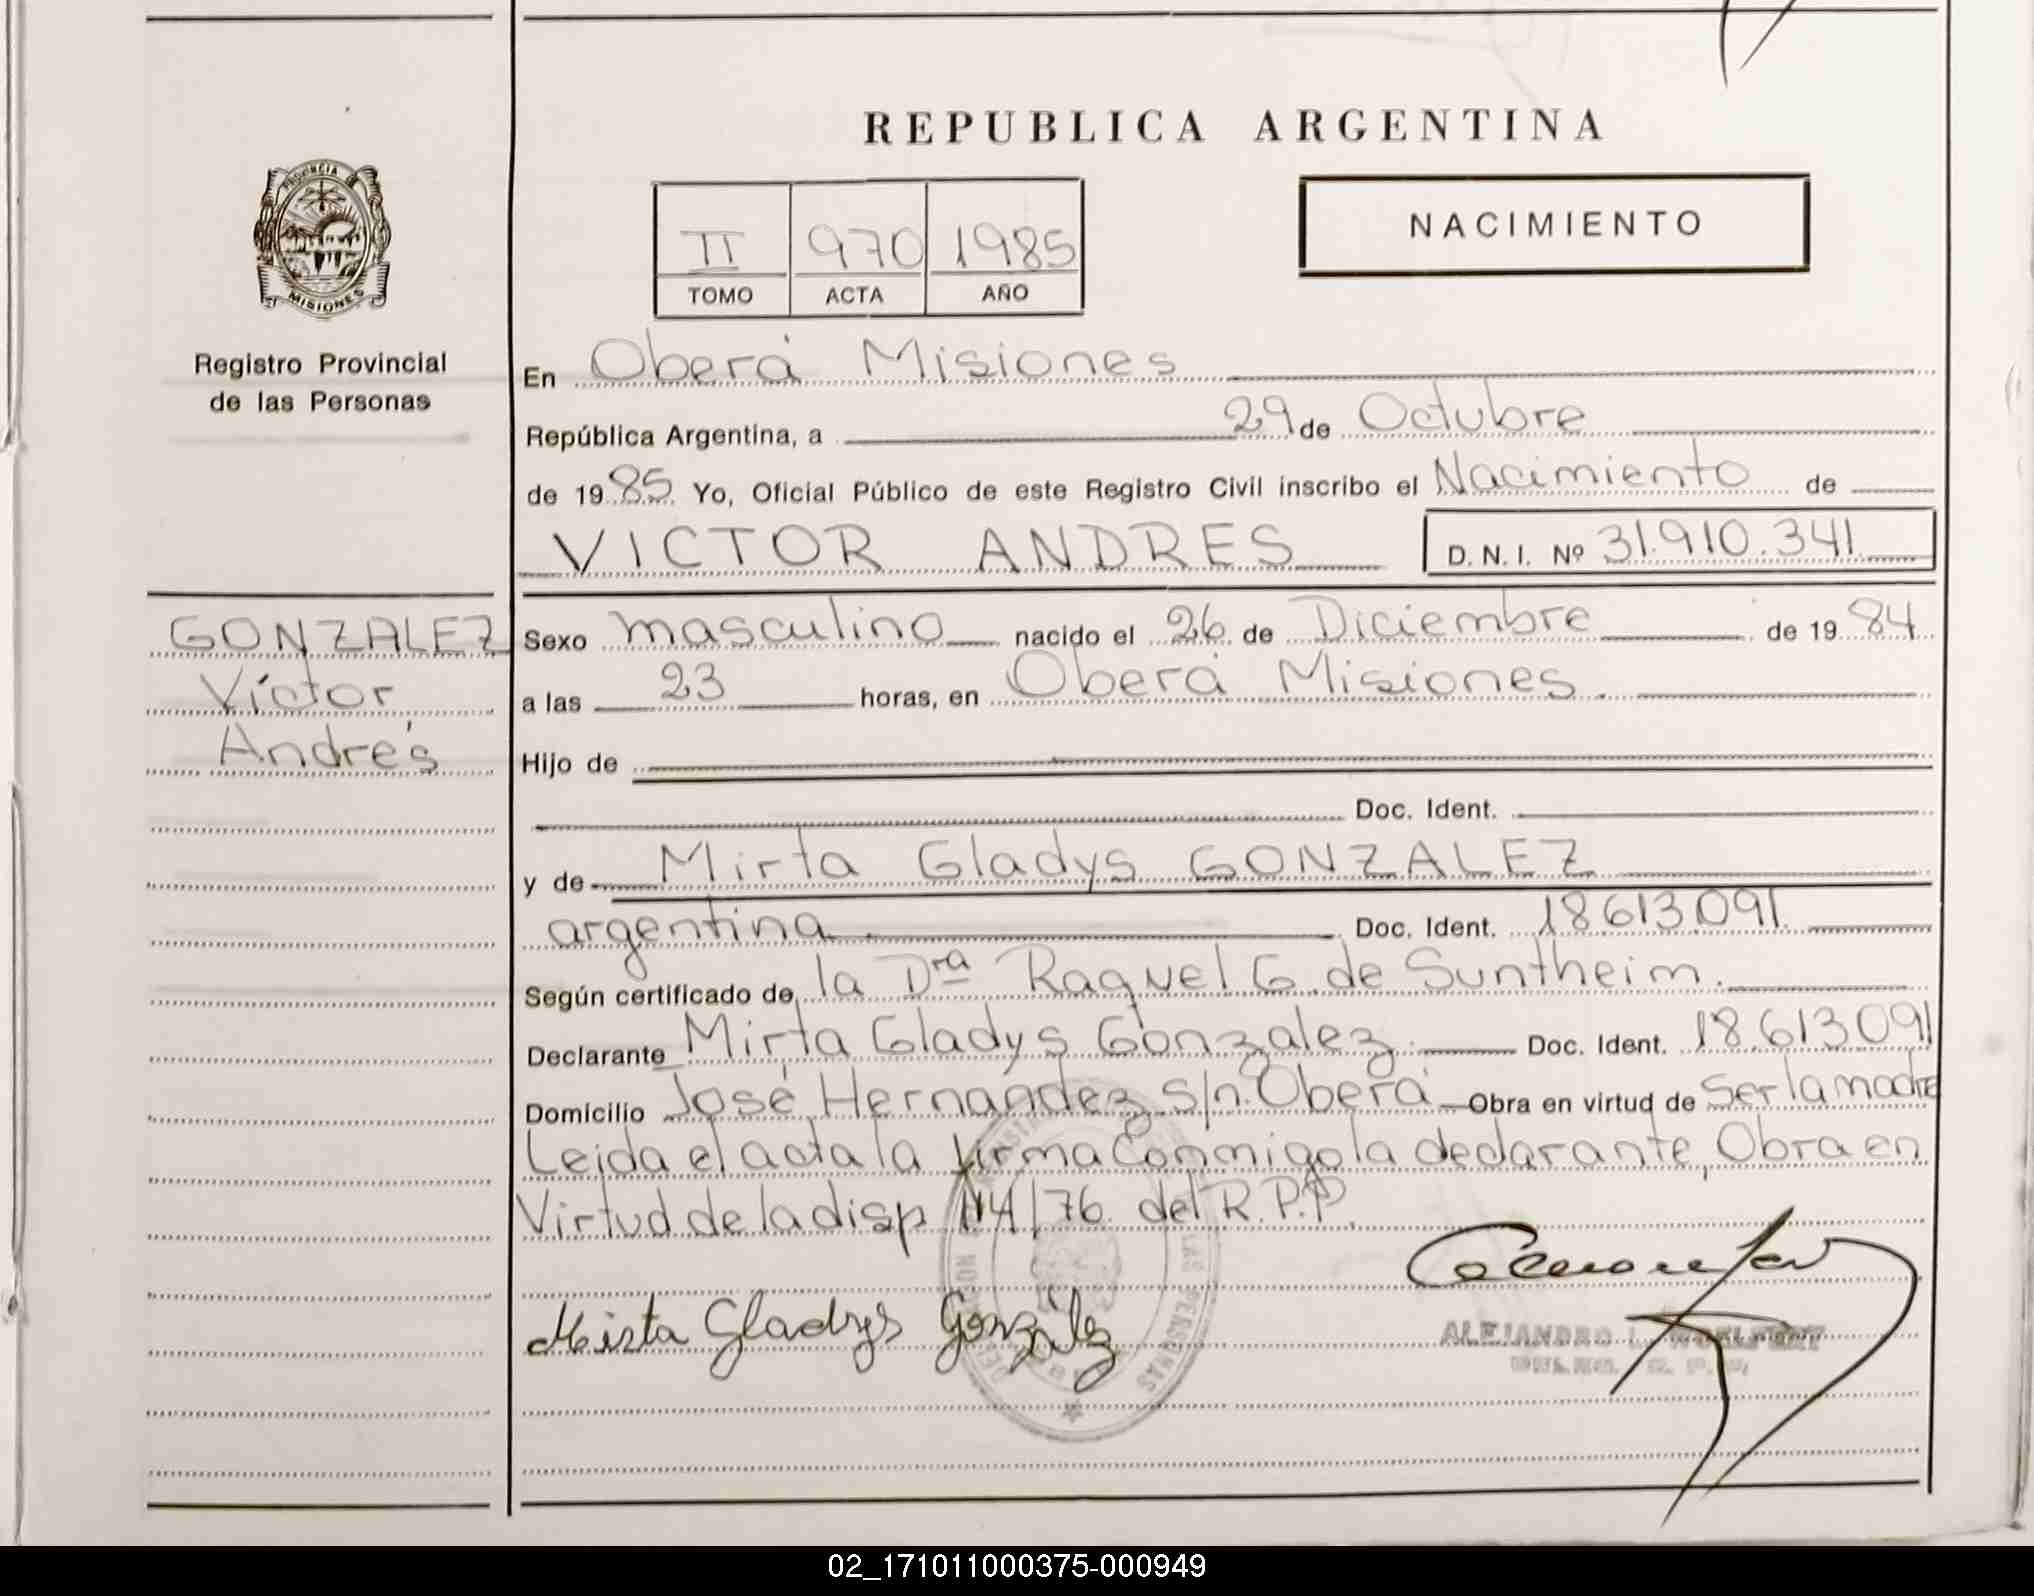 REPUBLICA ARGENTINA
PROVINCIA
MISIONES
Registro Provincial
de las Personas
II 970 1985
TOMO ACTA AÑO
NACIMIENTO
En Oberá Misiones
República Argentina, a 29 de Octubre
de 1985 Yo, Oficial Público de este Registro Civil inscribo el Nacimiento de
VICTOR ANDRES D. N. I. Nº 31.910.341
GONZALEZ
Víctor
Andrés
Sexo masculino nacido el 26 de Diciembre de 1984
a las 23 horas, en Oberá Misiones.
Hijo de
Doc. Ident.
y de Mirta Gladys GONZALEZ
argentina. Doc. Ident. 18613091
Según certificado de la Dra Raquel G. de Suntheim.
Declarante Mirta Gladys Gonzalez. Doc. Ident. 18.613091
Domicilio José Hernandez s/n. Oberá Obra en virtud de Ser la madre
Leida el acta la firma Conmigo la declarante, Obra en
Virtud de la disp 114/76 del R.P.P.
Mirta Gladys González
ALEJANDRO L.
DE LAS PERSONAS
02_171011000375-000949